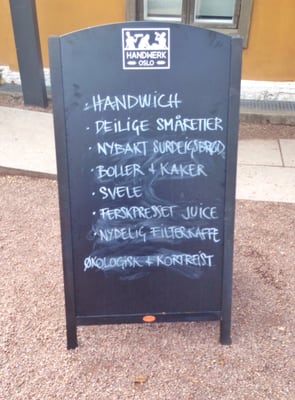 HANDWERK
OSLO
- HANDWICH
· DEILIGE SMÅRETTER
· NYBAKT SURDEIGSBRØD
· BOLLER + KAKER
· SVELE
· FERSKPRESSET JUICE
· NYDELIG FILTERKAFFE
ØKOLOGISK + KORTREIST